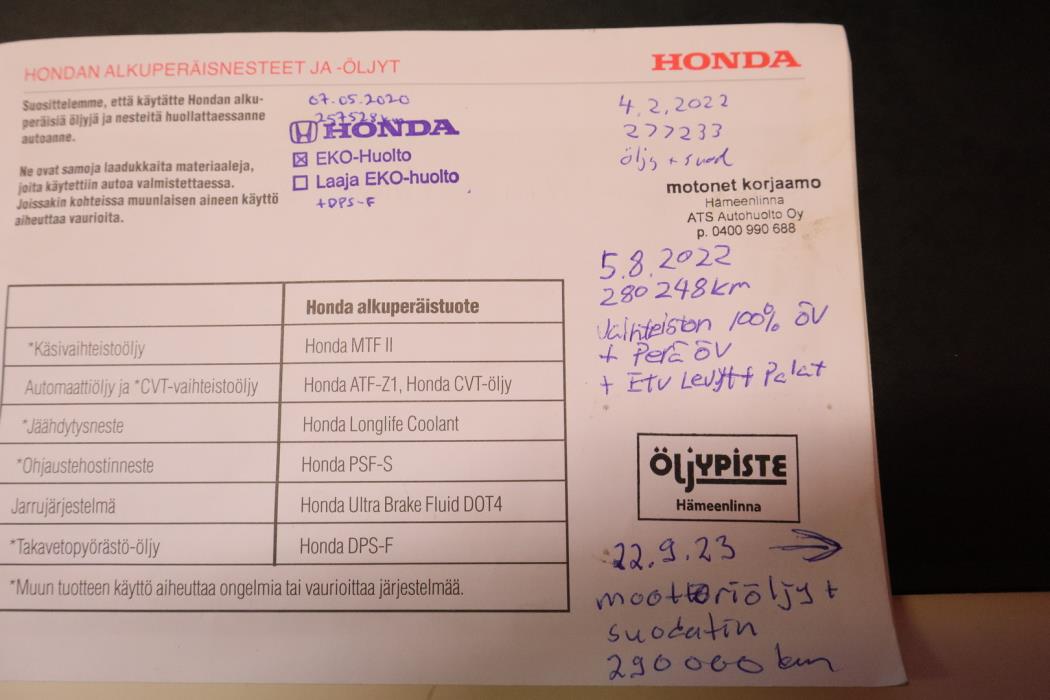 HONDAN ALKUPERÄISNESTEET JA -ÖLJYT
HONDA
Suosittelemme, että käytätte Hondan alku-
peräisiä öljyjä ja nesteitä huollattaessanne
autoanne.
Ne ovat samoja laadukkaita materiaaleja,
joita käytettiin autoa valmistettaessa.
Joissakin kohteissa muunlaisen aineen käyttö
aiheuttaa vaurioita.
07.05.2020
257528km
HONDA
EKO-Huolto
Laaja EKO-huolto
+DPS-F
4.2.2022
277233
öljy + suod
motonet korjaamo
Hämeenlinna
ATS Autohuolto Oy
p. 0400 990 688
5.8.2022
280248km
Vaihteiston 100% ÖV
+ Perä ÖV
+ Etu Levyt + Palat
Honda alkuperäistuote
*Käsivaihteistoöljy Honda MTF II
Automaattiöljy ja *CVT-vaihteistoöljy Honda ATF-Z1, Honda CVT-öljy
*Jäähdytysneste Honda Longlife Coolant
*Ohjaustehostinneste Honda PSF-S
Jarrujärjestelmä Honda Ultra Brake Fluid DOT4
*Takavetopyörästö-öljy Honda DPS-F
*Muun tuotteen käyttö aiheuttaa ongelmia tai vaurioittaa järjestelmää.
ÖLJYPISTE
Hämeenlinna
22.9.23 →
moottoriöljy +
suodatin
290000 km